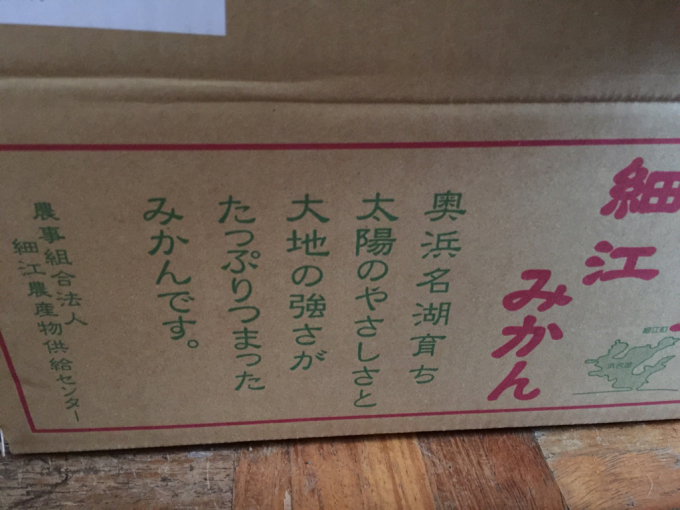 細江
みかん
細江町
浜名湖
奥浜名湖育ち
太陽のやさしさと
大地の強さが
たっぷりつまった
みかんです。
農事組合法人
細江農産物供給センター